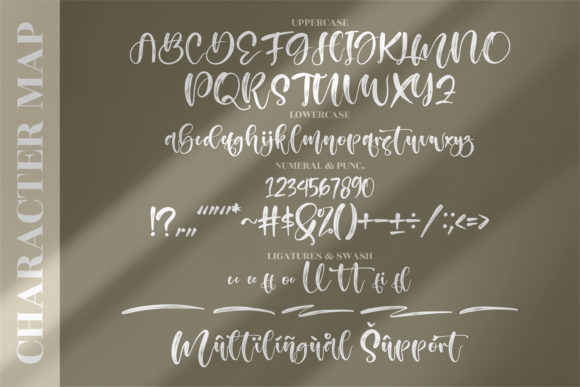 CHARACTER MAP
UPPERCASE
ABCDEFGHIJKLMNO
PQRSTUWXYZ
LOWERCASE
abcdefghijklmnopqrstuvwxyz
NUMERAL & PUNC.
1234567890
!?,,""''""*~#$&%()+-±÷/:;<=>
LIGATURES & SWASH
ff oo ll tt fi fl
Mûltilíñgùâl Šûppórt